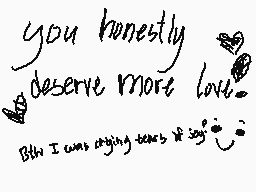 you honestly
deserve more love.
Btw I was crying tears of joy